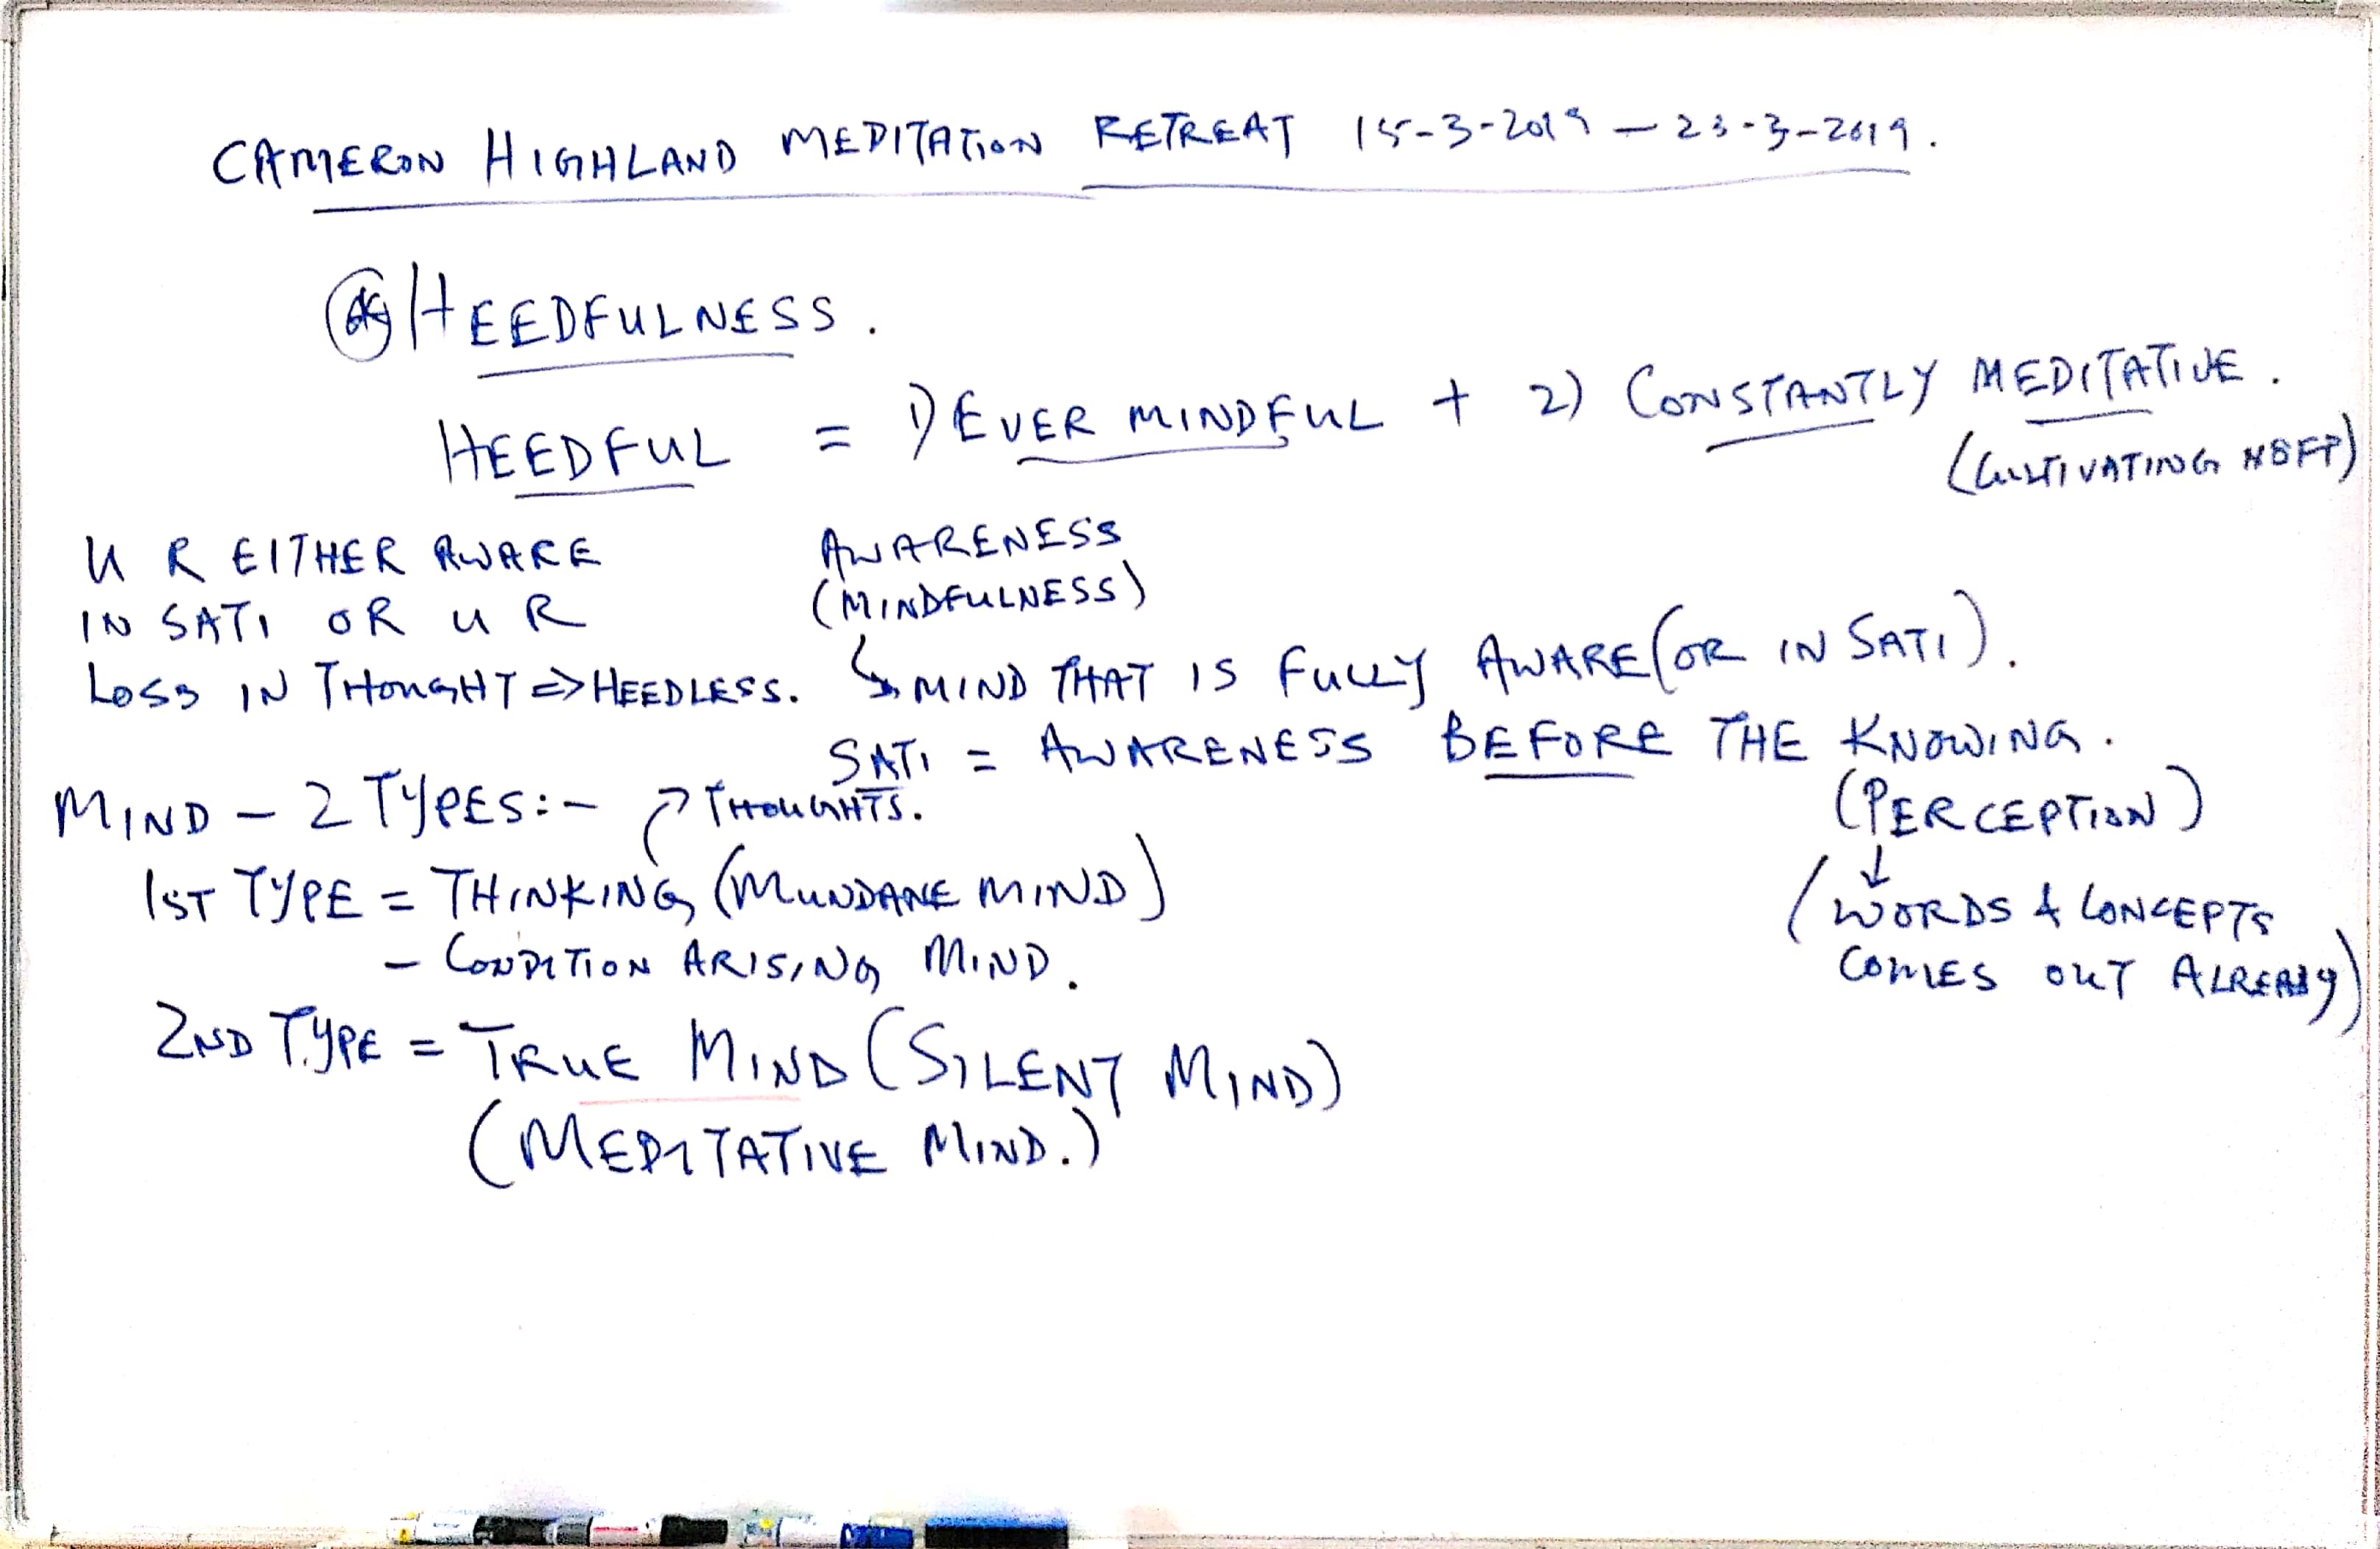 CAMERON HIGHLAND MEDITATION RETREAT 15-3-2019 — 23-3-2019.
HEEDFULNESS.
HEEDFUL = 1) EVER MINDFUL + 2) CONSTANTLY MEDITATIVE.
(CULTIVATING N8FP)
U R EITHER AWARE
IN SATI OR U R
LOSS IN THOUGHT => HEEDLESS.
AWARENESS
(MINDFULNESS)
↳ MIND THAT IS FULLY AWARE (OR IN SATI).
SATI = AWARENESS BEFORE THE KNOWING.
(PERCEPTION)
↓
(WORDS & CONCEPTS
COMES OUT ALREADY)
MIND – 2 TYPES:-
THOUGHTS.
1ST TYPE = THINKING (MUNDANE MIND)
– CONDITION ARISING MIND.
2ND TYPE = TRUE MIND (SILENT MIND)
(MEDITATIVE MIND.)